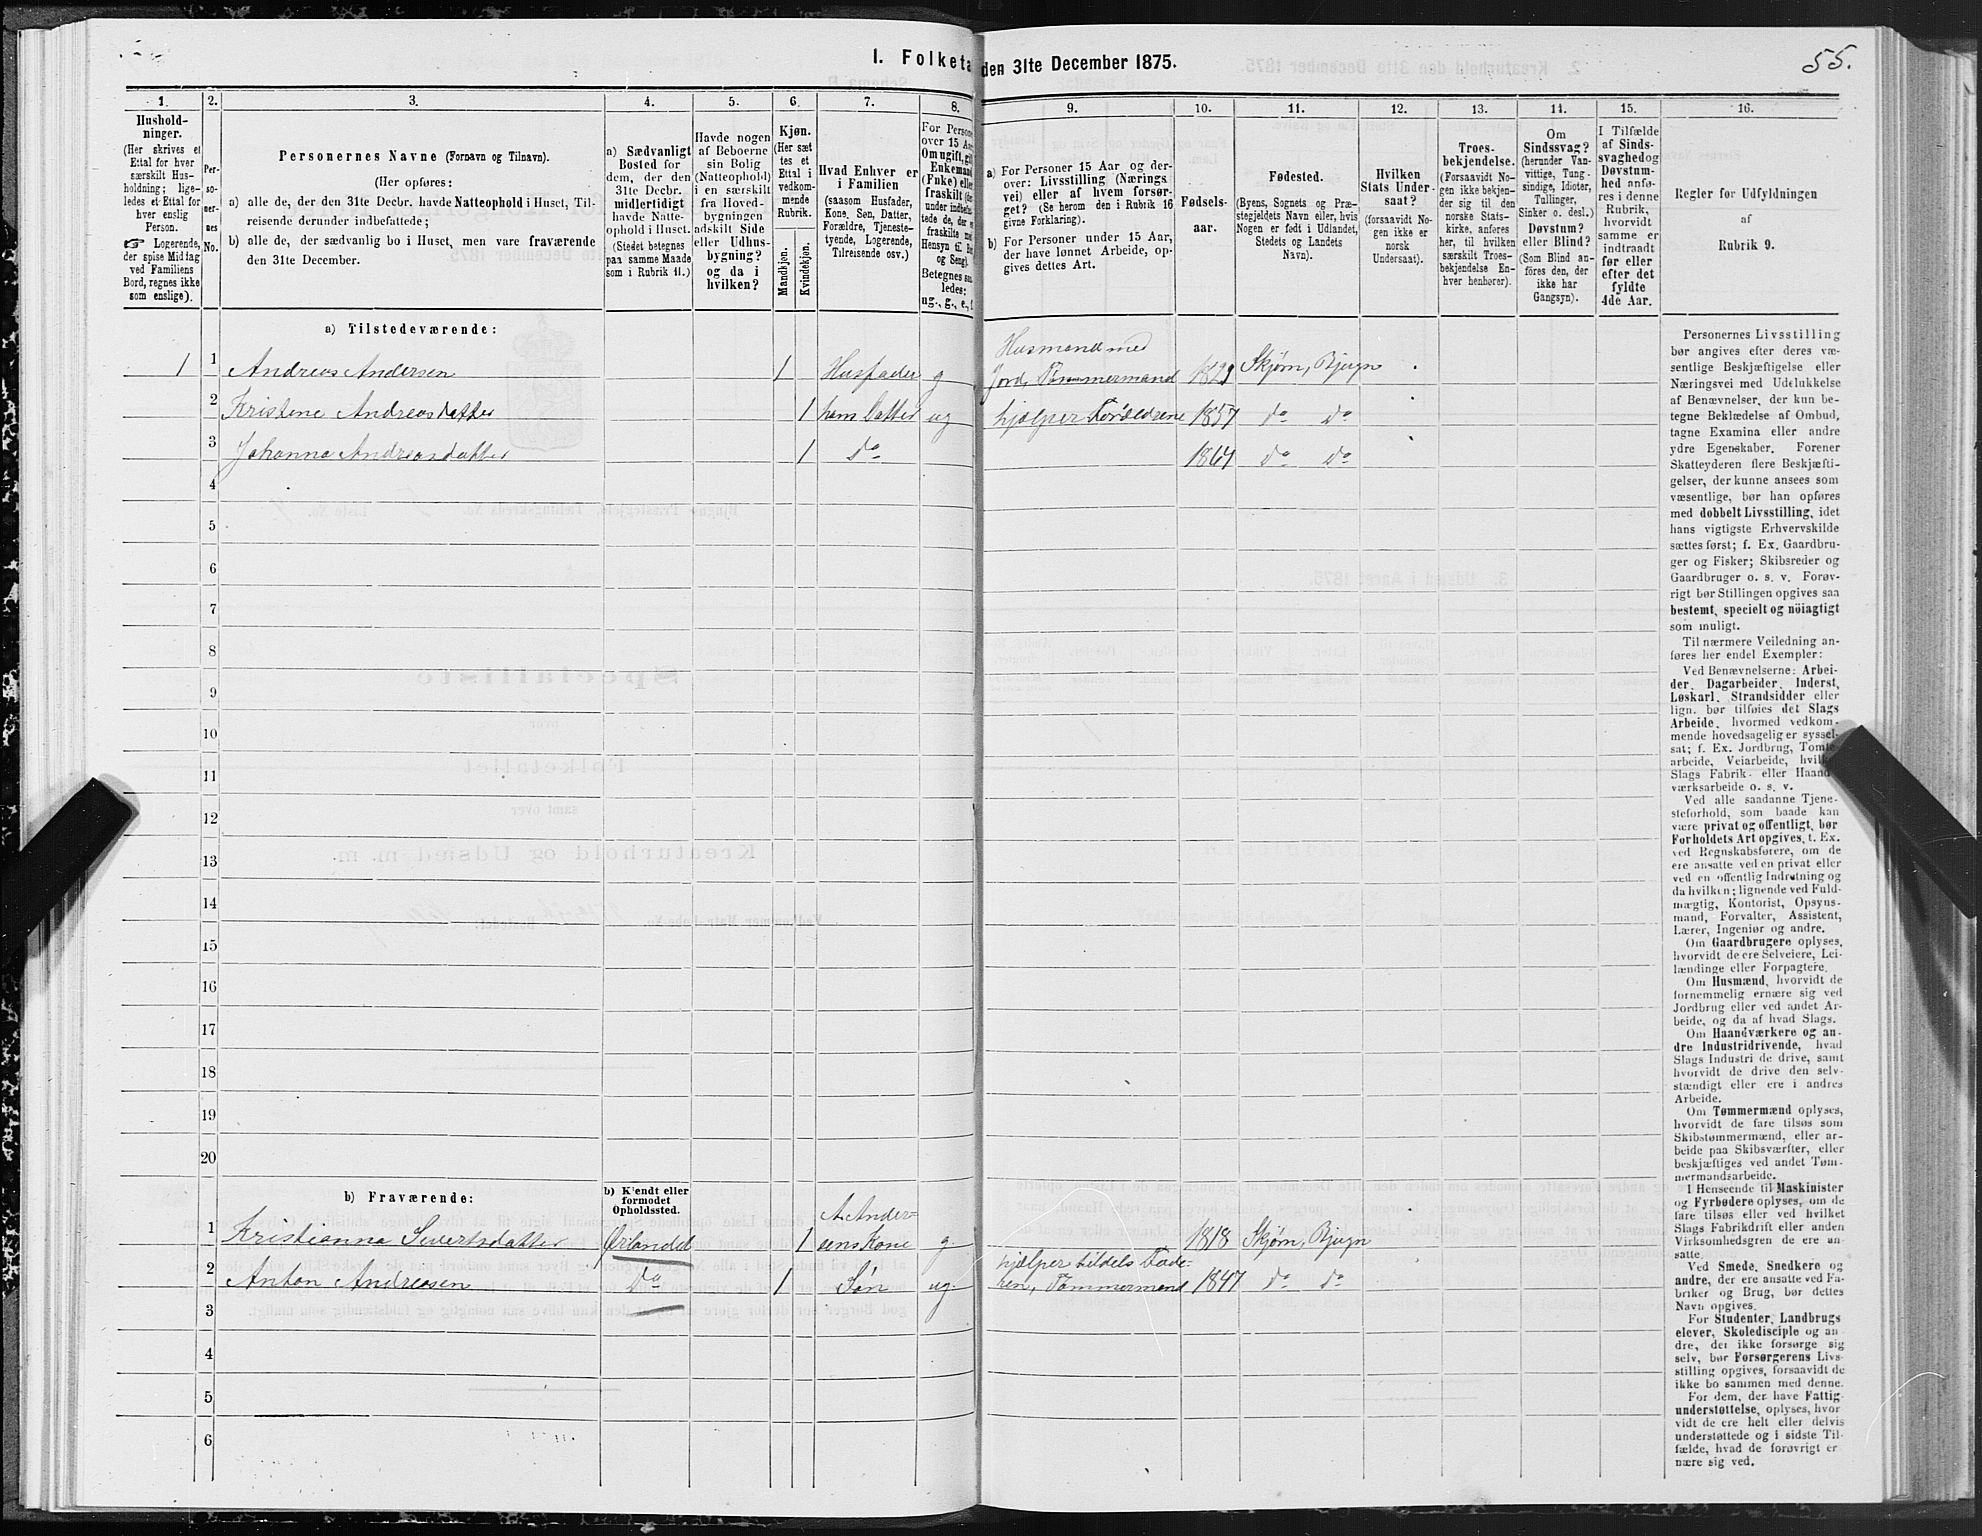 I. Folketa
den 31te December 1875.
55.
1.
Hushold-
ninger.
(Her skrives et
Ettal for hver
særskilt Hus-
holdning; lige-
ledes et Ettal for
hver enslig
Person.
☞ Logerende,
der spise Midtag
ved Familiens
Bord, regnes ikke
som enslige).
2.
Per-
so-
ner-
nes
No.
3.
Personernes Navne (Fornavn og Tilnavn).
(Her opføres:
a) alle de, der den 31te Decbr. havde Natteophold i Huset, Til-
reisende derunder indbefattede;
b) alle de, der sædvanlig bo i Huset, men vare fraværende
den 31te December.
4.
a) Sædvanligt
Bosted for
dem, der den
31te Decbr.
midlertidigt
havde Natte-
ophold i Huset.
(Stedet betegnes
paa samme Maade
som i Rubrik 11.)
5.
Havde nogen
af Beboerne
sin Bolig
(Natteophold)
i en særskilt
fra Hoved-
bygningen
adskilt Side
eller Udhus-
bygning?
og da i
hvilken?
6.
Kjøn.
(Her sæt
tes et
Ettal i
vedkom-
mende
Rubrik.
Mandkjøn.
Kvindekjøn.
7.
Hvad Enhver er
i Familien
(saasom Husfader,
Kone, Søn, Datter,
Forældre, Tjeneste-
tyende, Logerende,
Tilreisende osv.)
8.
For Persone
over 15 Aa
Om ugift, gif
Enkemand
(Enke) elle
fraskilt (de
under indbefat
tede de, der e
fraskilte med
Hensyn til Bo
og Seng).
Betegnes saa
ledes:
ug., g., e., f.
9.
a) For Personer 15 Aar og der-
over: Livsstilling (Nærings
vei) eller af hvem forsør-
get? (Se herom den i Rubrik 16
givne Forklaring).
b) For Personer under 15 Aar,
der have lønnet Arbeide, op-
gives dettes Art.
10.
Fødsels-
aar.
11.
Fødested.
(Byens, Sognets og Præ-
stegjeldets Navn eller, hvis
Nogen er født i Udlandet,
Stedets og Landets
Navn).
12.
Hvilken
Stats Under-
saat?
(forsaavidt No-
gen ikke er
norsk
Undersaat).
13.
Troes-
bekjendelse.
(Forsaavidt No-
gen ikke bekjen-
der sig til den
norske Stats-
kirke, anføres
her, til hvilken
særskilt Troes-
bekjendelse En-
hver henhører).
14.
Om
Sindssvag?
(herunder Van-
vittige, Tung-
sindige, Idioter,
Tullinger,
Sinker o. desl.)
Døvstum?
eller Blind?
(Som Blind an-
føres den, der
ikke har
Gangsyn).
15.
I Tilfælde
af Sinds-
svaghedog
Døvstum-
hed anfø-
res i denne
Rubrik,
hvorvidt
samme er
indtraadt
før eller
efter det
fyldte
4de Aar.
16.
Regler for Udfyldningen
af
Rubrik 9.
a) Tilstedeværende:
1 1 Andreas Andersen 1 Husfader g Husmand med
Jord, Tømmermand 1829 Skjørn, Bjugn
2 Kristine Andreasdatter 1 hans Datter ug hjælper Forældrene 1857 do do
3 Johanna Andreasdatter 1 do 1864 do do
4
5
6
7
8
9
10
11
12
13
14
15
16
17
18
19
20
b) Fraværende:
b) Kjendt eller
formodet
Opholdssted.
1 Kristianna Sivertsdatter Ørlandet 1 A. Ander-
sens Kone g. 1818 Skjørn, Bjugn
2 Anton Andreasen do 1 Søn ug. hjælper tildels Fade-
ren, Tømmermand 1847 do do
3
4
5
6
Personernes Livsstilling
bør angives efter deres væ-
sentlige Beskjæftigelse eller
Næringsvei med Udelukkelse
af Benævnelser, der kun be-
tegne Beklædelse af Ombud,
tagne Examina eller andre
ydre Egenskaber. Forener
Skatteyderen flere Beskjæfti-
gelser, der kunne ansees som
væsentlige, bør han opføres
med dobbelt Livsstilling, idet
hans vigtigste Erhvervskilde
sættes først; f. Ex. Gaardbru-
ger og Fisker; Skibsreder og
Gaardbruger o. s. v. Forøv-
rigt bør Stillingen opgives saa
bestemt, specielt og nöiagtigt
som muligt.
Til nærmere Veiledning an-
føres her endel Exempler:
Ved Benævnelserne: Arbei-
der, Dagarbeider, Inderst,
Løskarl, Strandsidder eller
lign. bør tilføies det Slags
Arbeide, hvormed vedkom-
mende hovedsagelig er syssel-
sat; f. Ex. Jordbrug, Tomte-
arbeide, Veiarbeide, hvilket
Slags Fabrik- eller Haand-
værksarbeide o. s. v.
Ved alle saadanne Tjene-
steforhold, som baade kan
være privat og offentligt, bør
Forholdets Art opgives, t. Ex.
ved Regnskabsførere, om de
ere ansatte ved en privat eller
ved en offentlig Indretning og
da hvilken; lignende ved Fuld-
mægtig, Kontorist, Opsyns-
mand, Forvalter, Assistent,
Lærer, Ingeniør og andre.
Om Gaardbrugere oplyses,
hvorvidt de ere Selveiere, Lei-
lændinge eller Forpagtere.
Om Husmænd, hvorvidt de
fornemmelig ernære sig ved
Jordbrug eller ved andet Ar-
beide, og da af hvad Slags.
Om Haandværkere og an-
dre Industridrivende, hvad
Slags Industri de drive, samt
hvorvidt de drive den selv-
stændigt eller ere i andres
Arbeide.
Om Tømmermænd oplyses,
hvorvidt de fare tilsøs som
Skibstømmermænd, eller ar-
beide paa Skibsværfter, eller
beskjæftiges ved andet Tøm-
mermandsarbeide.
I Henseende til Maskinister
og Fyrbødere oplyses, om de
fare tilsøs eller ved hvilket
Slags Fabrikdrift eller anden
Virksomhedsgren de ere an-
satte.
Ved Smede, Snedkere og
andre, der ere ansatte ved Fa-
briker og Brug, bør dettes
Navn opgives.
For Studenter, Landbrugs
elever, Skoledisciple og an-
dre, der ikke forsørge sig
selv, bør Forsørgerens Livs-
stilling opgives, forsaavidt de
ikke bo sammen med denne.
For dem, der have Fattig-
understøttelse, oplyses, hvor-
vidt de ere helt eller delvis
understøttede og i sidste Til-
fælde, hvad de forøvrigt er-
nære sig ved.